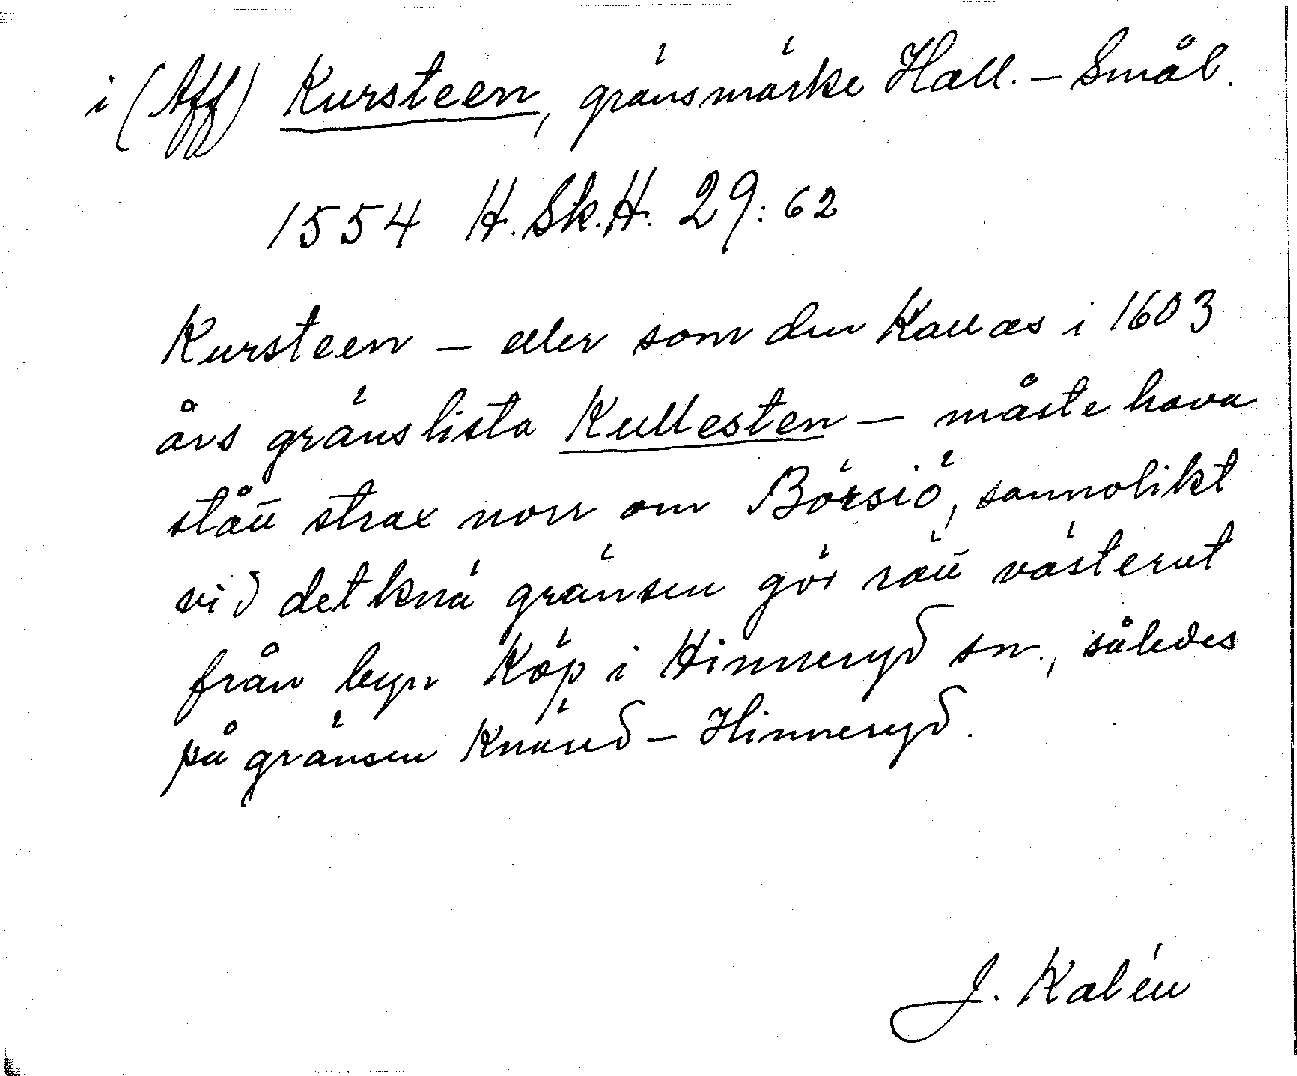 i (Aff) Kursteen, gränsmärke Hall. – Smål.
1554 H. Sk. H. 29: 62
Kursteen – eller som den Kallas i 1603
års gränslista Kullesten – måste hava
stått strax norr om Börsiö, sannolikt
vid det knä gränsen gör rätt västerut
från byn Köp i Hinneryd sn., således
på gränsen Knäred – Hinneryd.
J. Kalén